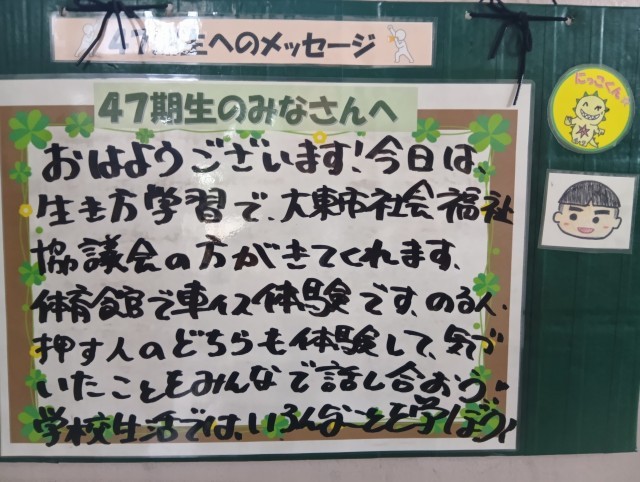 47期生へのメッセージ
47期生のみなさんへ
にっこくん☆
おはようございます!今日は、
生き方学習で、大東市社会福祉
協議会の方がきてくれます。
体育館で車イス体験です。のる人、
押す人のどちらも体験して、気づ
いたことをみんなで話し合おう。
学校生活では、いろんなことを学ぼう!